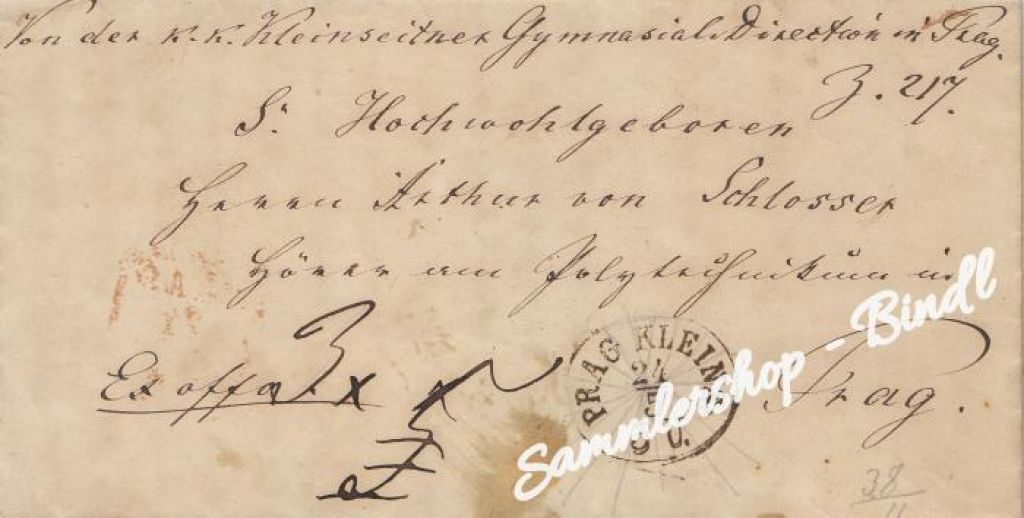 Von der k. k. Kleinseitner Gymnasial-Direction in Prag.
Z. 217.
Sr. Hochwohlgeboren
Herrn Arthur von Schlosser
Hörer am Polytechnikum in
Prag.
Ex offo
PRAG KLEIN
Sammlershop - Bindl
38
11